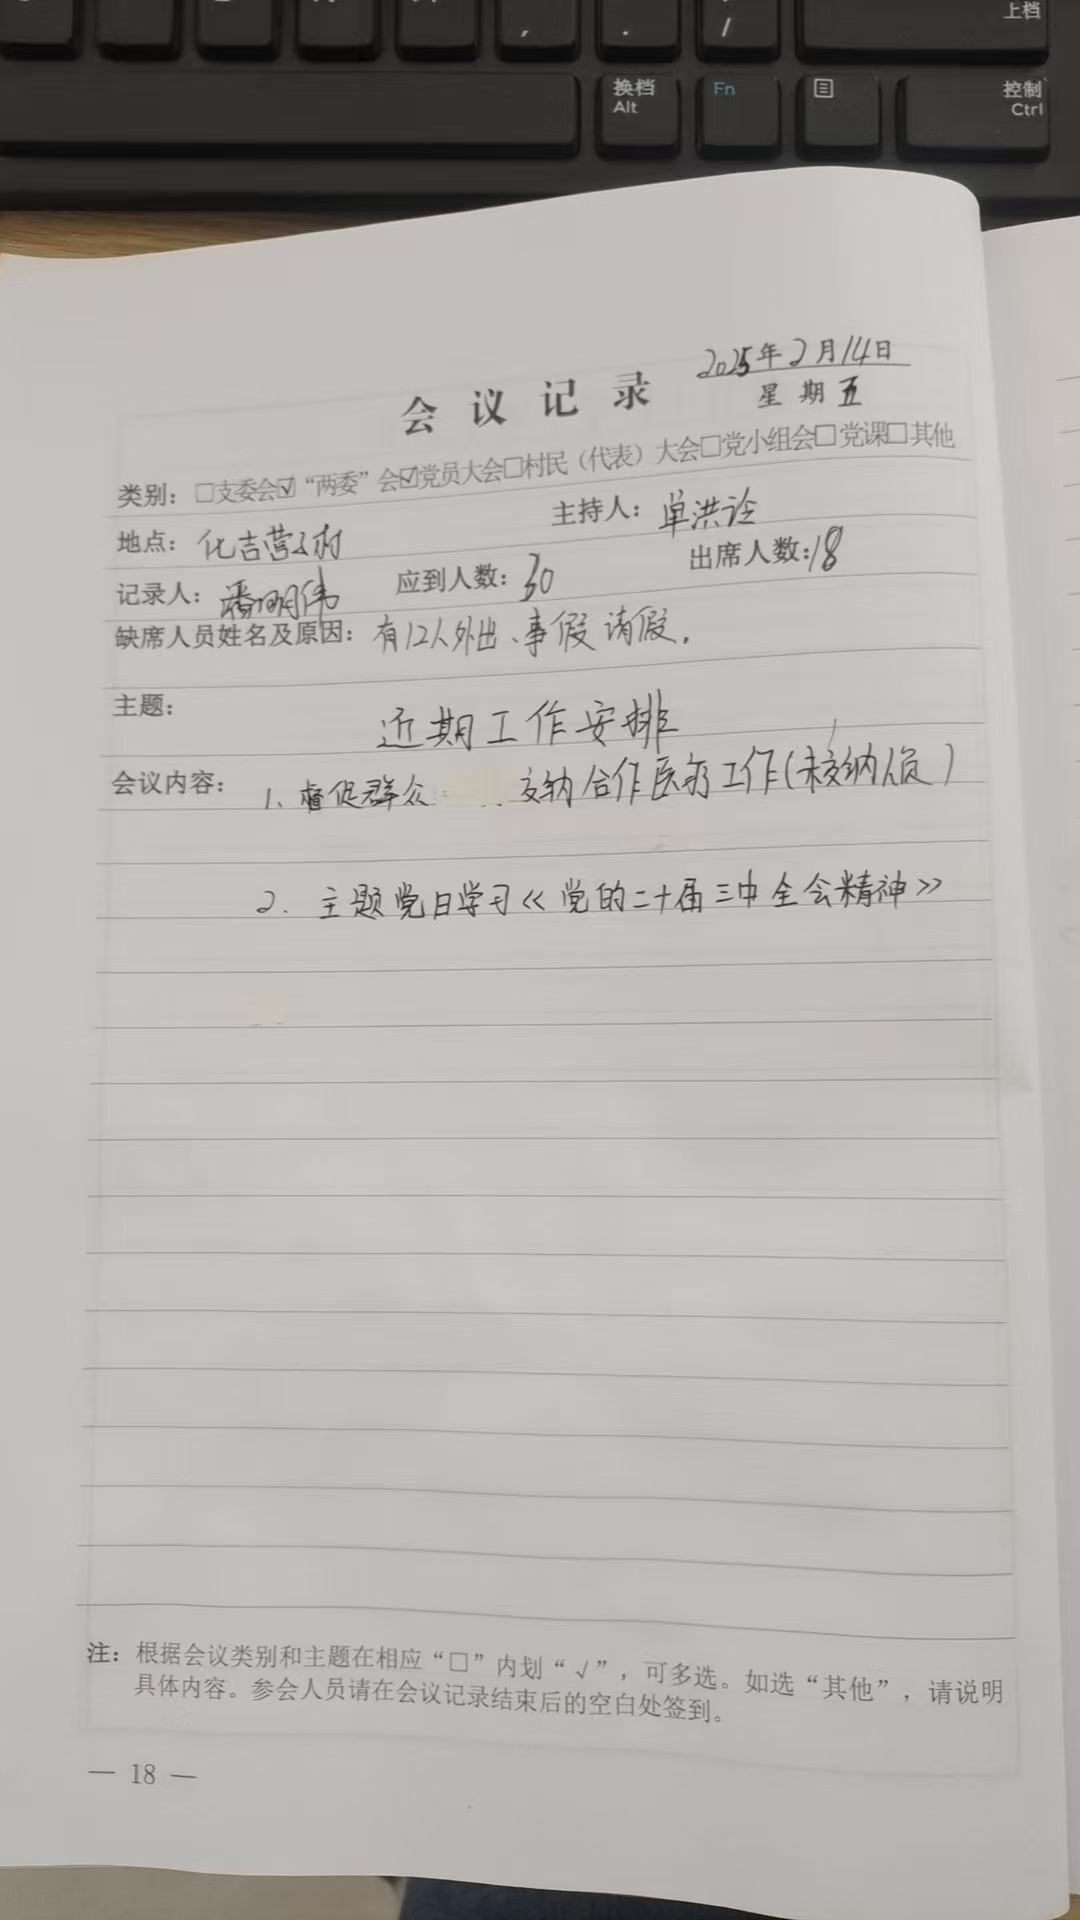 上档
换档
Alt
Fn
控制
Ctrl
2025年2月14日
会议记录
星期五
类别：□支委会☑“两委”会☑党员大会□村民（代表）大会□党小组会□党课□其他
地点：化吉营子村
主持人：单洪
记录人：潘明伟 应到人数：30 出席人数：18
缺席人员姓名及原因：有12人外出、事假请假.
主题：
近期工作安排
会议内容：1、督促群众 交纳合作医疗工作(未交纳人员)
2. 主题党日学习《党的二十届三中全会精神》
注：根据会议类别和主题在相应“□”内划“√”，可多选。如选“其他”，请说明
具体内容。参会人员请在会议记录结束后的空白处签到。
— 18 —